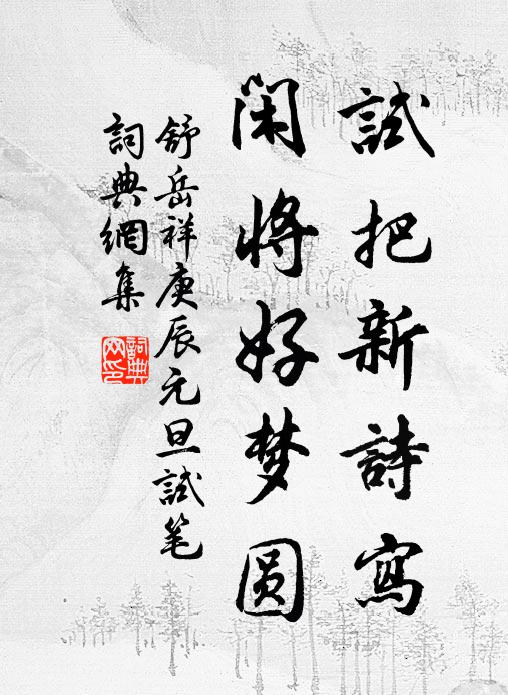 試把新詩寫
闲將好梦圆
舒岳祥庚辰元旦試笔
詞典網集
詞典
网印